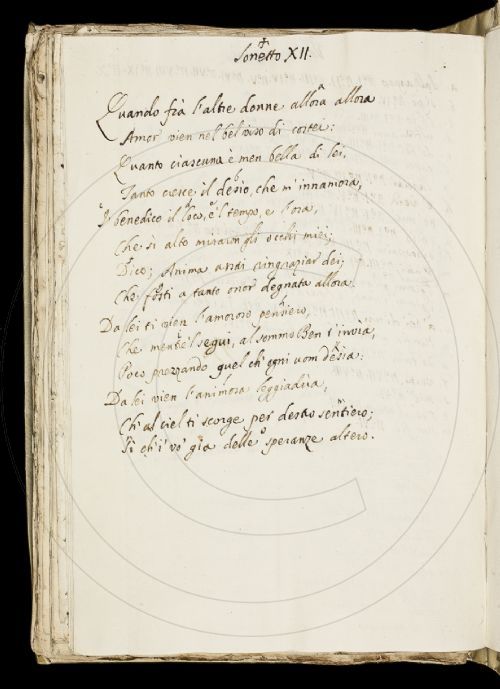 Sonetto XII.
Quando frà l'altre donne allora allora
Amor vien nel bel viso di costei:
Quanto ciascuna è men bella di lei,
Tanto cresce il desio, che m'innamora,
I' benedico il loco, e 'l tempo, e l'ora,
Che sì alto miraron gli occhi miei;
Dico; Anima assai ringraziar dei;
Che fosti a tanto onor degnata allora.
Da lei ti vien l'amoroso pensiero,
Che mentre 'l segui, al sommo Ben t'invia,
Poco prezzando quel ch'ogni uom desia:
Da lei vien l'animosa leggiadria,
Ch'al ciel ti scorge per destro sentiero;
Sì ch'i' vo già delle speranze altero.